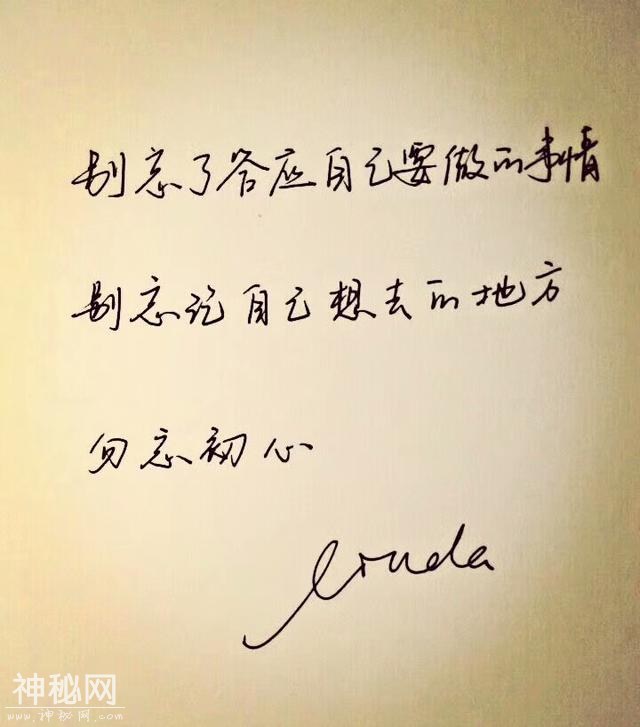 别忘了答应自己要做的事情
别忘记自己想去的地方
勿忘初心
神秘网
www.神秘网.com